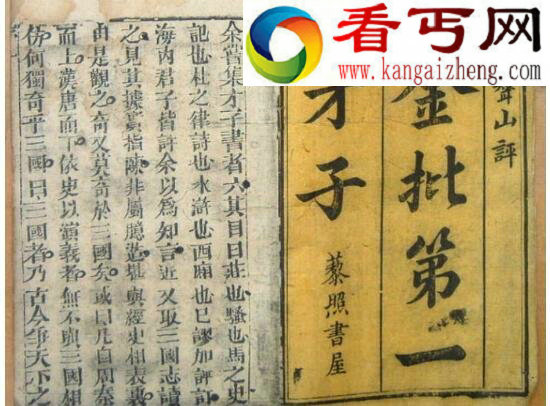 看丐网
www.kangaizheng.com
山評
金批第一
才子
藜照書屋
余嘗集才子書者六其目曰莊也騷也馬之史
記也杜之律詩也水滸也西廂也已謬加評訂
海內君子皆許余以為知言近又取三國志讀
之見其據實指陳非屬臆造堪與經史相表裏
由是觀之奇又莫奇於三國矣或曰凡自周秦
而上漢唐而下依史以演義者無不與三國相
仿何獨奇乎三國曰三國者乃古今爭天下之